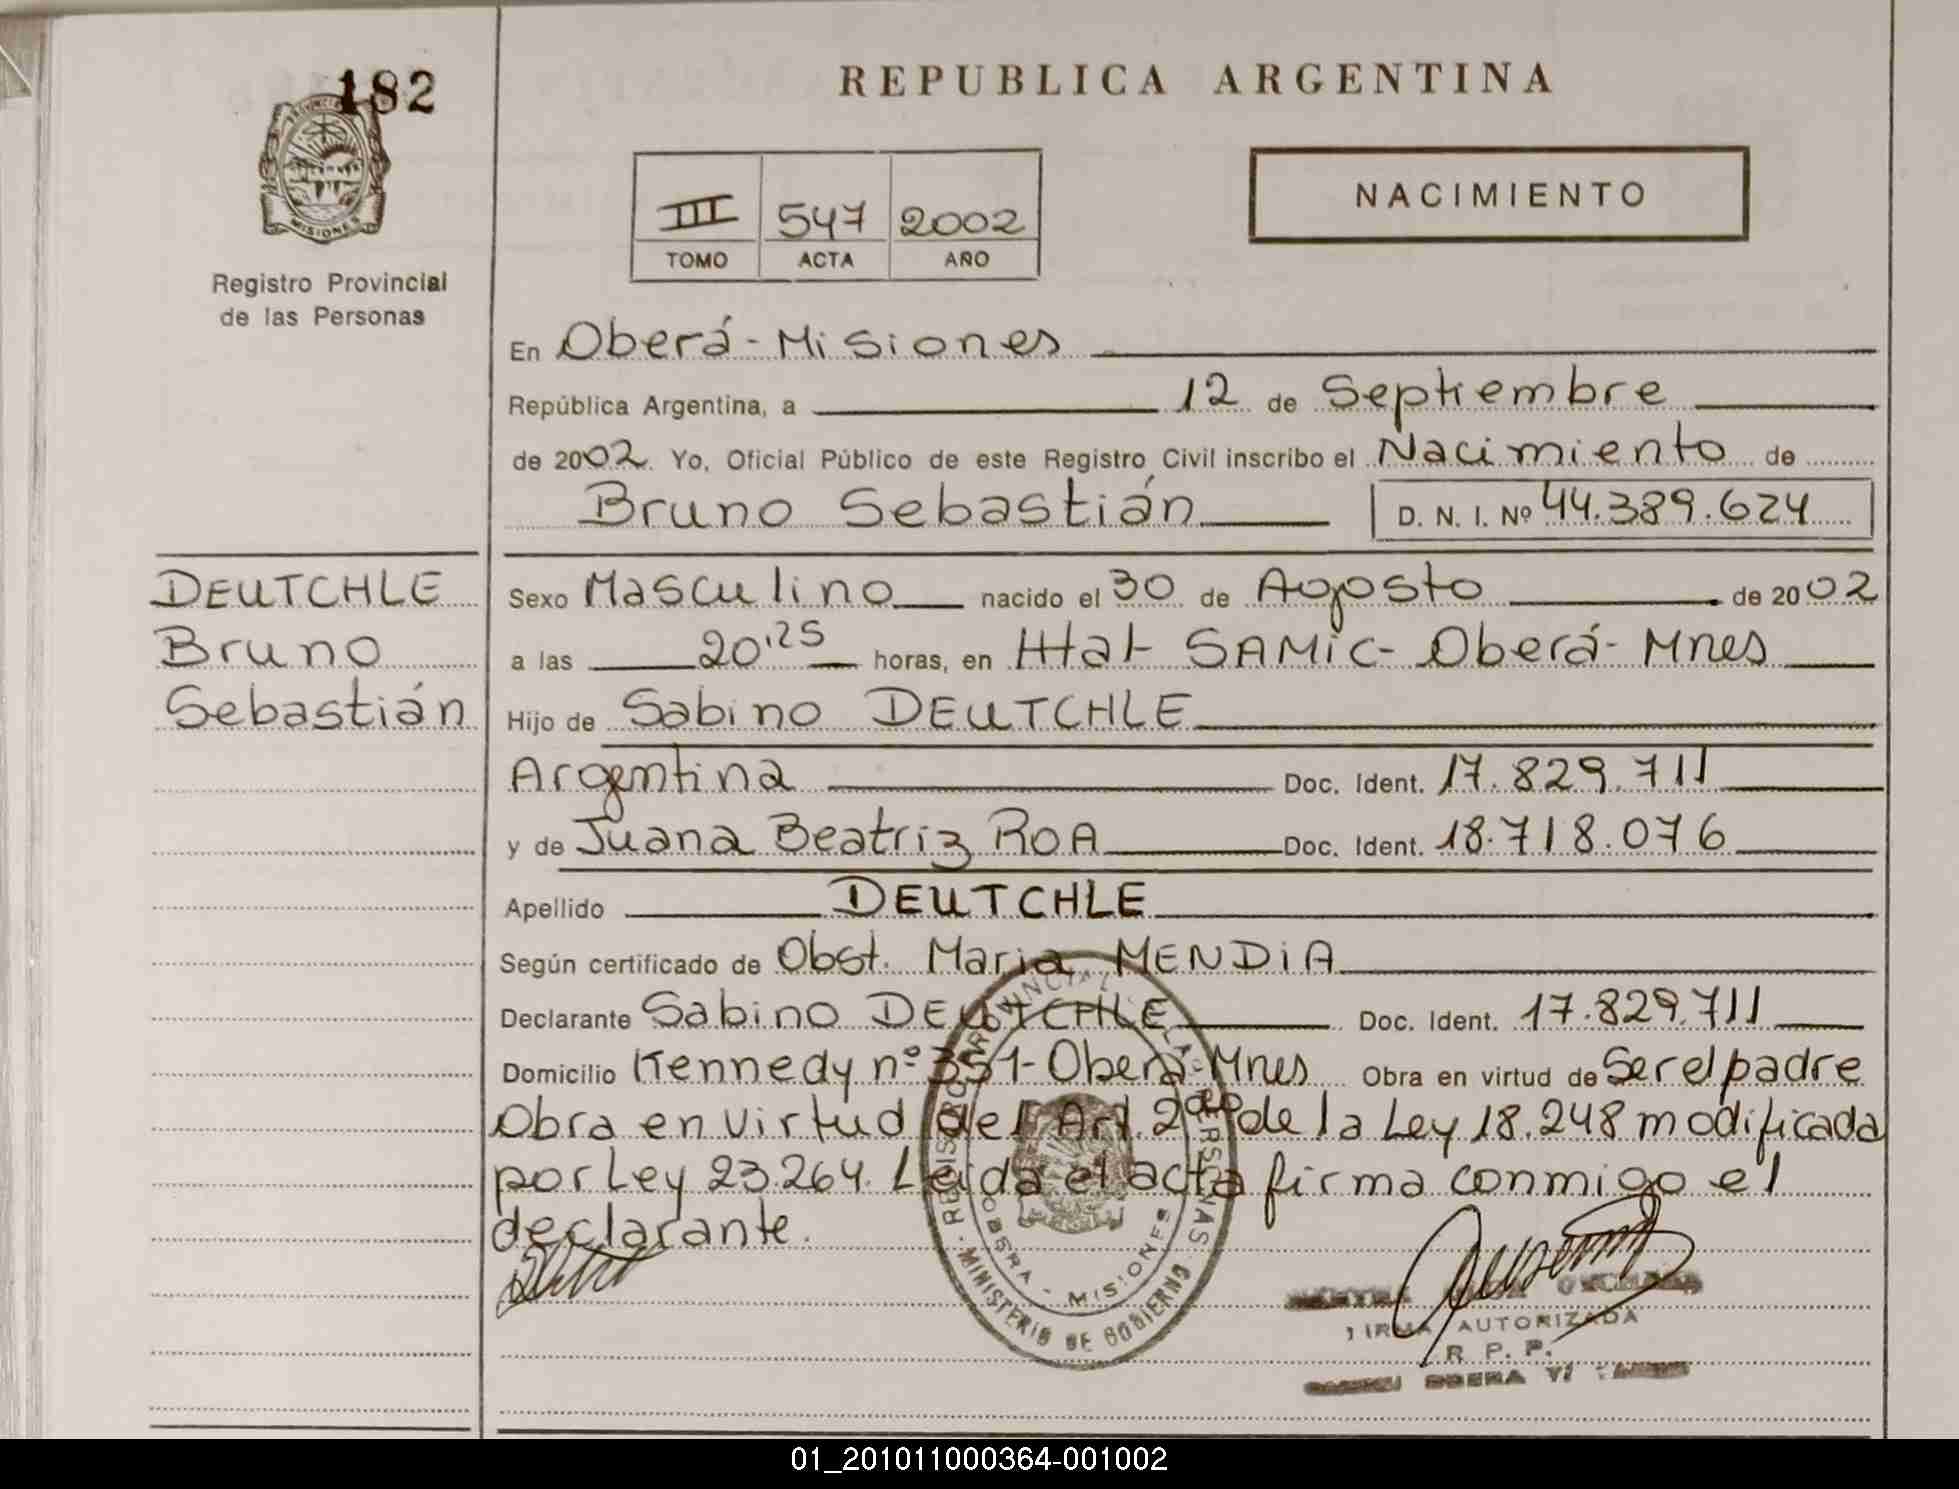 182
REPUBLICA ARGENTINA
NACIMIENTO
III 547 2002
TOMO ACTA AÑO
PROVINCIA
MISIONES
Registro Provincial
de las Personas
En Oberá - Misiones
República Argentina, a 12 de Septiembre
de 2002. Yo, Oficial Público de este Registro Civil inscribo el Nacimiento de
Bruno Sebastián D. N. I. Nº 44.389.624
DEUTCHLE
Bruno
Sebastián
Sexo Masculino nacido el 30 de Agosto de 2002
a las 20,25 horas, en Htal SAMIC - Oberá - Mnes
Hijo de Sabino DEUTCHLE
Argentina Doc. Ident. 17.829.711
y de Juana Beatriz ROA Doc. Ident. 18.718.076
Apellido DEUTCHLE
Según certificado de Obst. Maria MENDIA
Declarante Sabino DEUTCHLE Doc. Ident. 17.829.711
Domicilio Kennedy nº 351 - Oberá - Mnes Obra en virtud de Ser el padre
Obra en virtud del Art. 2do de la Ley 18.248 modificada
por Ley 23.264. Leida el acta firma conmigo el
declarante.
MINISTERIO DE GOBIERNO
MISIONES
FIRMA AUTORIZADA
R. P. P.
OBERA
01_201011000364-001002